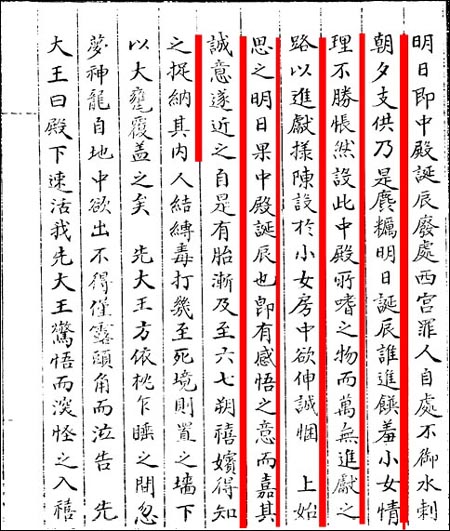 明日即中殿誕辰廢處西宮罪人自處不御水刺
朝夕支供乃是麁糲明日誕辰誰進饌羞小女情
理不勝悵然設此中殿所嗜之物而萬無進獻之
路以進獻樣陳設於小女房中欲伸誠悃　上始
思之明日果中殿誕辰也卽有感悟之意而嘉其
誠意遂近之自是有胎漸及至六七朔禧嬪得知
之捉納其內人結縛毒打幾至死境則置之墻下
以大甕覆盖之矣　先大王方依枕乍睡之間忽
夢神龍自地中欲出不得僅露頭角而泣告　先
大王曰殿下速活我先大王驚悟而深怪之入禧